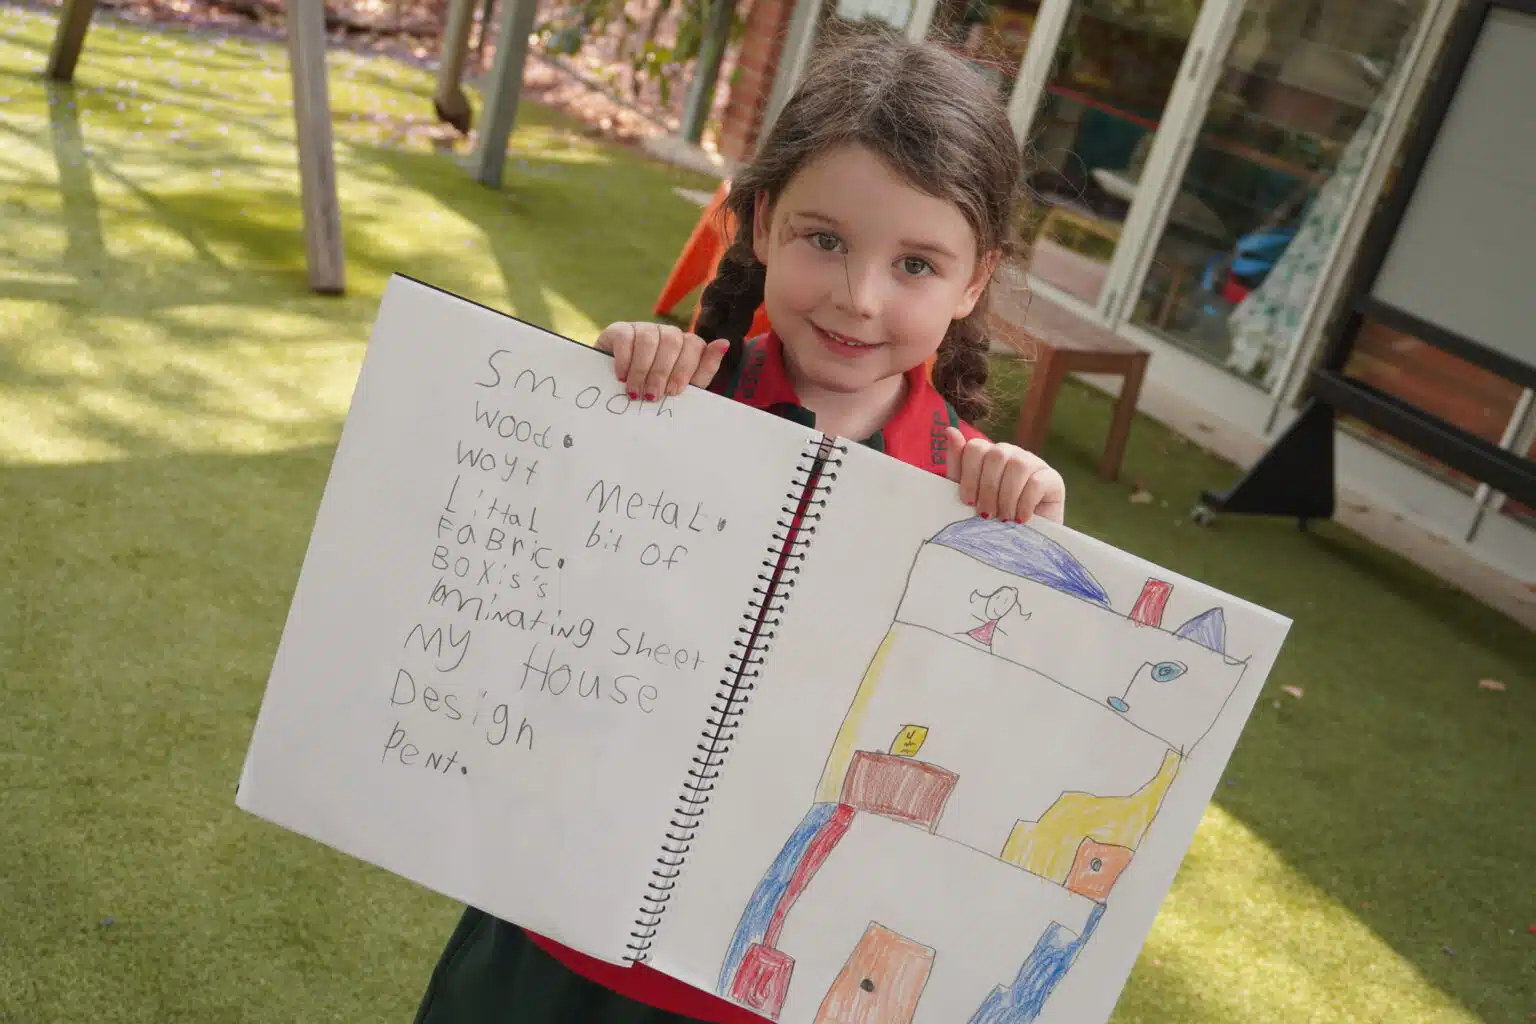 Smooth
wood.
woyt metal.
Littal bit of
FaBric.
BOXis's
laminating Sheet
My House
Design
Pent.
PREP